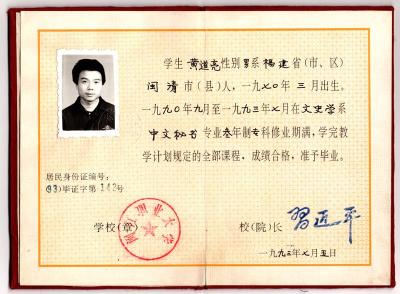 学生 黄道亮 性别 男 系 福建 省(市、区)
闽清 市(县)人，一九七〇年 三 月出生。
一九九〇年九月至一九九三年七月在 文史学 系
中文秘书 专业叁年制专科修业期满，学完教
学计划规定的全部课程，成绩合格，准予毕业。
居民身份证编号：
(93)毕证字第 142号
学校(章)
职业大学
校(院)长 习近平
一九九三年七月五日